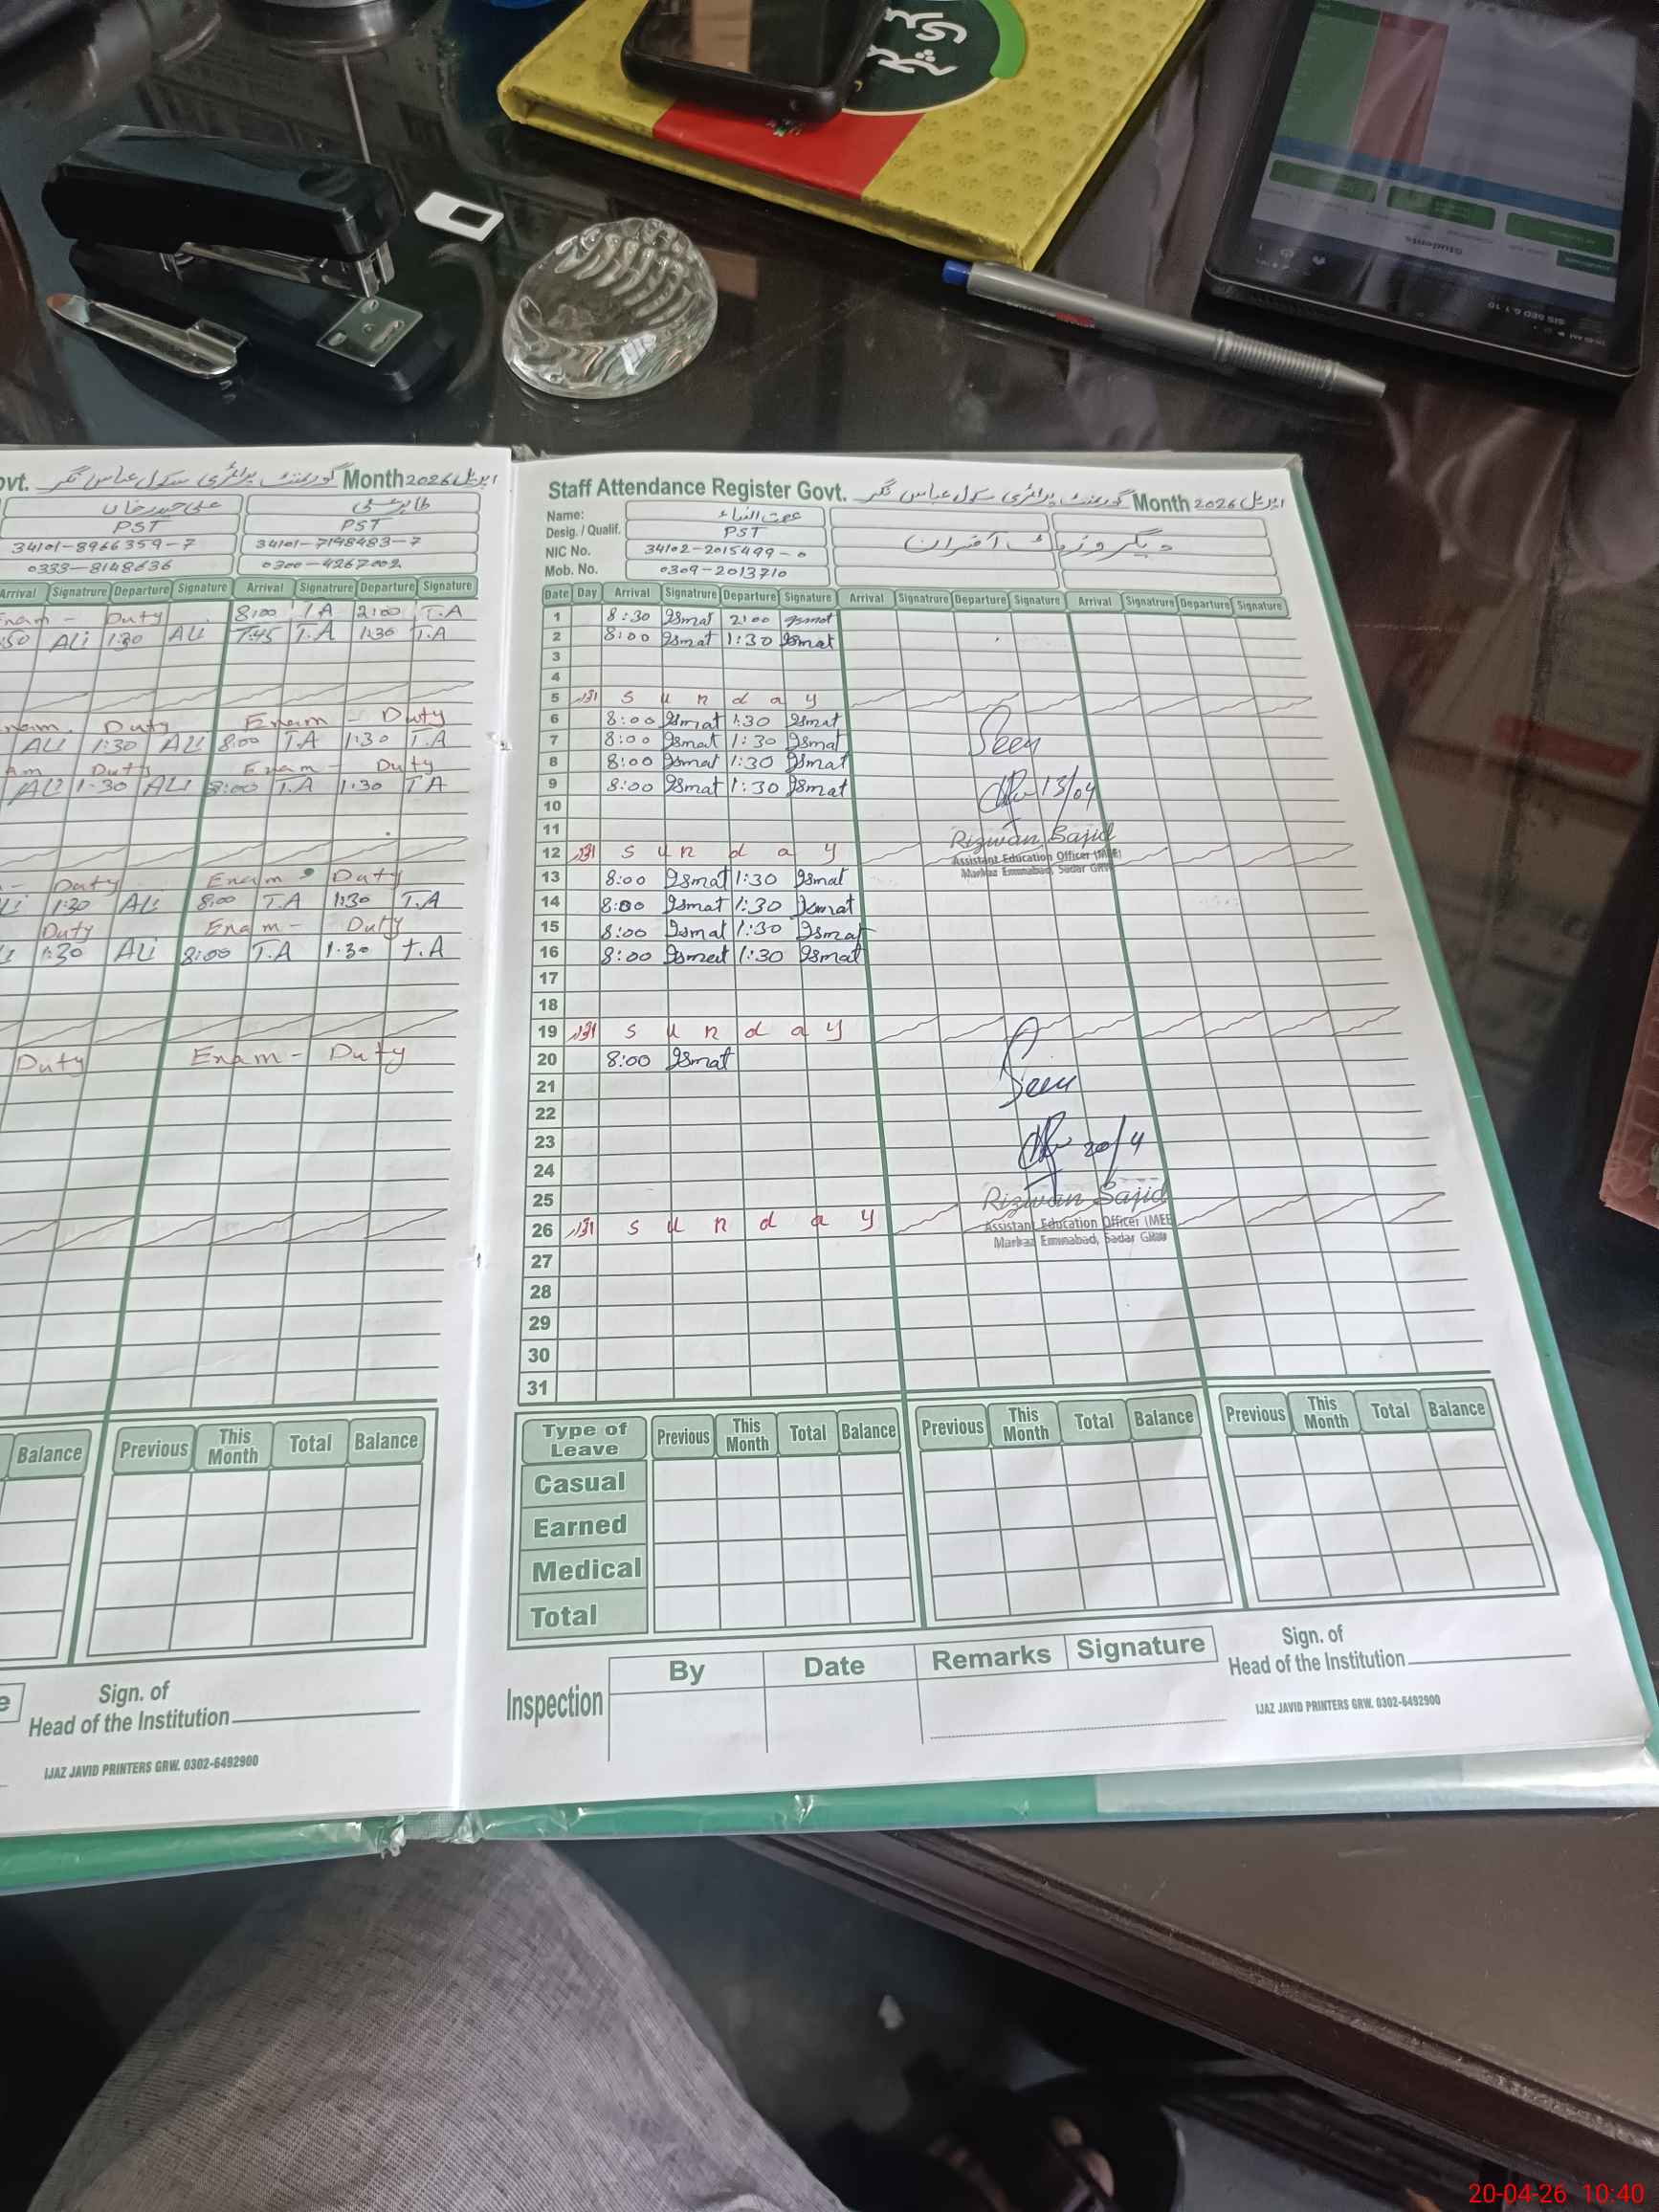 ovt. گورنمنٹ پرائمری سکول عباس نگر Month اپریل 2026
علی حیدر خاں
PST PST
34101-8966359-7 34101-7148483-7
0333-8148636 0300-4267002
Arrival Signatrure Departure Signature Arrival Signatrure Departure Signature
Duty 8:00 T.A 2:00 T.A
50 ALi 1:30 ALi 7:45 T.A 1:30 T.A
Duty Exam - Duty
ALi 1:30 ALi 8:00 T.A 1:30 T.A
am Duty Exam - Duty
ALi 1:30 ALi 8:00 T.A 1:30 T.A
- Duty Exam - Duty
Li 1:30 ALi 8:00 T.A 1:30 T.A
Duty Exam - Duty
1:30 ALi 8:00 T.A 1:30 T.A
Duty Exam - Duty
Balance Previous This Month Total Balance
Sign. of
Head of the Institution
IJAZ JAVID PRINTERS GRW. 0302-6492900
Staff Attendance Register Govt. گورنمنٹ پرائمری سکول عباس نگر Month اپریل 2026
Name: عصمت النساء
Desig. / Qualif. PST
NIC No. 34102-2015499-0
Mob. No. 0309-2013710
دیگر وزٹ آفسران
Date Day Arrival Signatrure Departure Signature Arrival Signatrure Departure Signature Arrival Signatrure Departure Signature
1 8:30 Ismat 2:00 Ismat
2 8:00 Ismat 1:30 Ismat
3
4
5 اتوار S u n d a y
6 8:00 Ismat 1:30 Ismat
7 8:00 Ismat 1:30 Ismat
8 8:00 Ismat 1:30 Ismat
9 8:00 Ismat 1:30 Ismat
10
11
12 اتوار S u n d a y
13 8:00 Ismat 1:30 Ismat
14 8:00 Ismat 1:30 Ismat
15 8:00 Ismat 1:30 Ismat
16 8:00 Ismat 1:30 Ismat
17
18
19 اتوار S u n d a y
20 8:00 Ismat
21
22
23
24
25
26 اتوار S u n d a y
27
28
29
30
31
Seen
13/04
Rizwan Sajid
Assistant Education Officer (MEE)
Markaz Eminabad, Sadar GRW
Seen
20/4
Rizwan Sajid
Assistant Education Officer (MEE
Markaz Eminabad, Sadar GRW
Type of Leave Previous This Month Total Balance Previous This Month Total Balance Previous This Month Total Balance
Casual
Earned
Medical
Total
Inspection By Date Remarks Signature
Sign. of
Head of the Institution
IJAZ JAVID PRINTERS GRW. 0302-6492900
Students
SIS SED 6.1.10
20-04-26 10:40